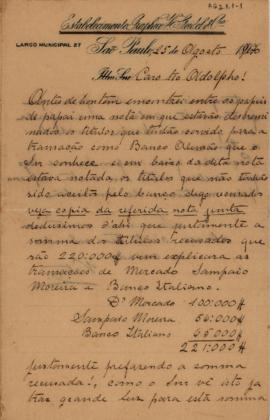 AG 2.1.1-1
Estabelecimento Graphico
LARGO MUNICIPAL 27 São Paulo, 25 de Agosto
Illmo Snr Caro tio Adolpho!
Ante-hontem encontrei entre os papeis
de papai uma nota em que estarão descrimi
nados os titulos que tinhão servido para a
transação com o Banco Alemão que o
Snr conhece e em baixo da dita nota
estava notada, os titulos que não tinhão
sido aceitos pelo banco, digo recusados
veja copia da referida nota junta
deduzimos d'ahi que justamente a
somma dos titulos recusados que
são 220:000# vem explicar a as
transações de Mercado Sampaio
Moreira e Banco Italiano.
Dº Mercado 100:000#
Sampaio Moreira 56:000#
Banco Italiano 65000#
221:000#
justamente prefazendo a somma
recusada!, como o Snr vê isto já
traz grande luz para esta somma